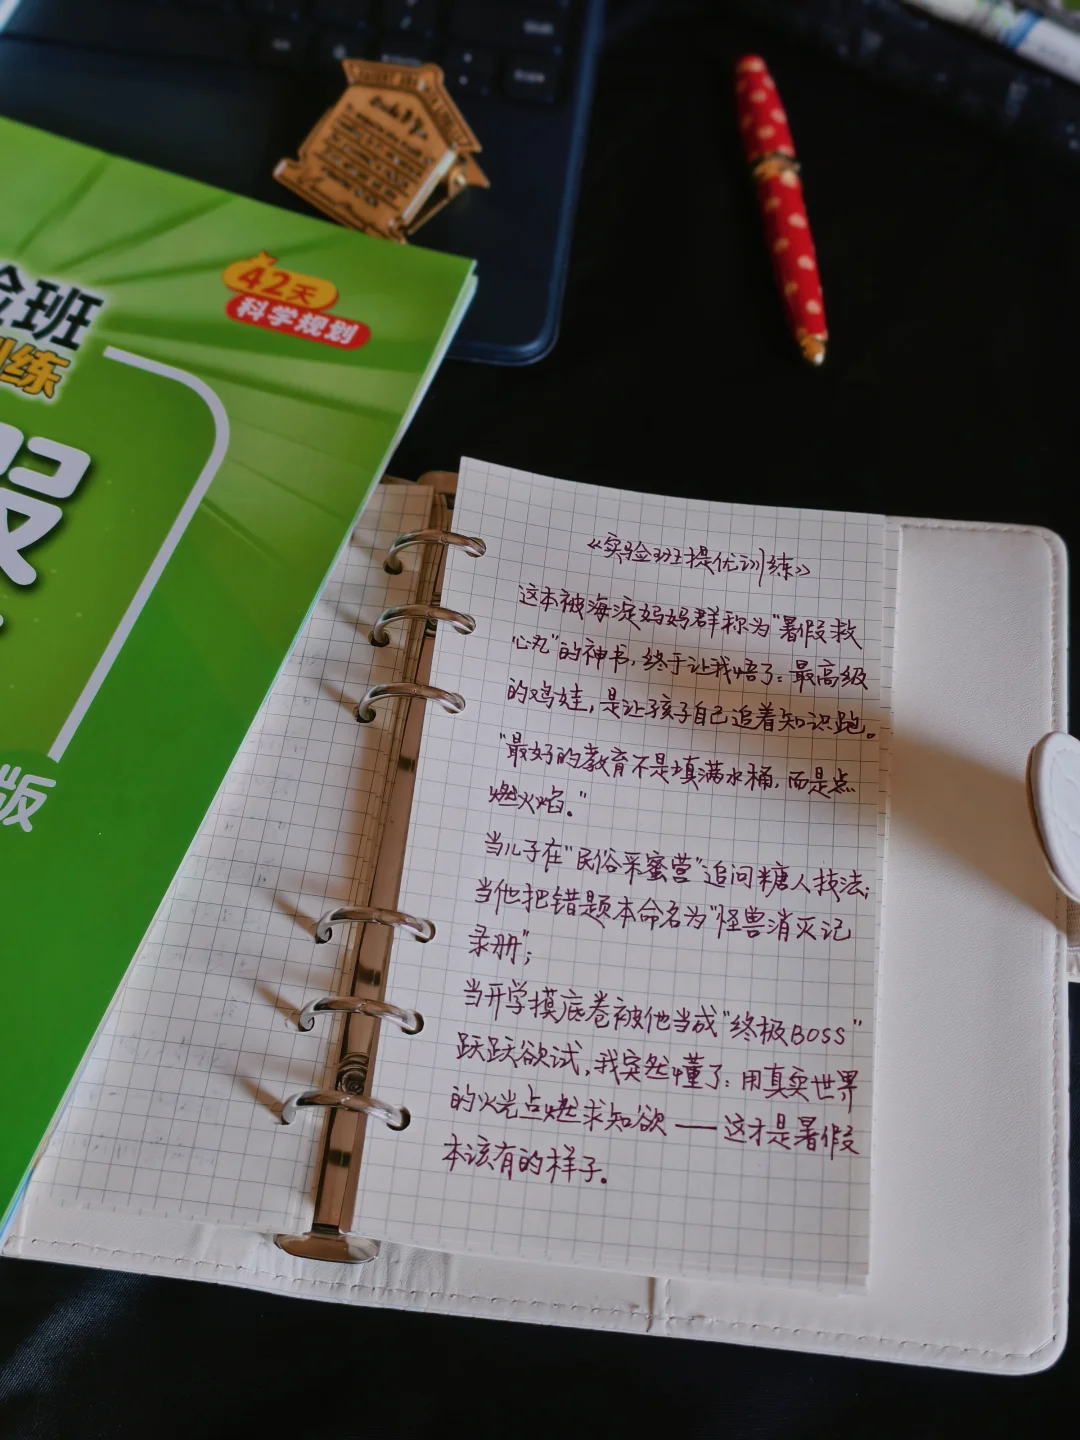 验班
训练
42天
科学规划
假
版
《实验班提优训练》
这本被海淀妈妈群称为"暑假救
心丸"的神书，终于让我悟了：最高级
的鸡娃，是让孩子自己追着知识跑。
"最好的教育不是填满水桶，而是点
燃火焰。"
当儿子在"民俗采蜜营"追问糖人技法；
当他把错题本命名为"怪兽消灭记
录册"；
当开学摸底卷被他当成"终极BOSS"
跃跃欲试，我突然懂了：用真实世界
的火光点燃求知欲——这才是暑假
本该有的样子。